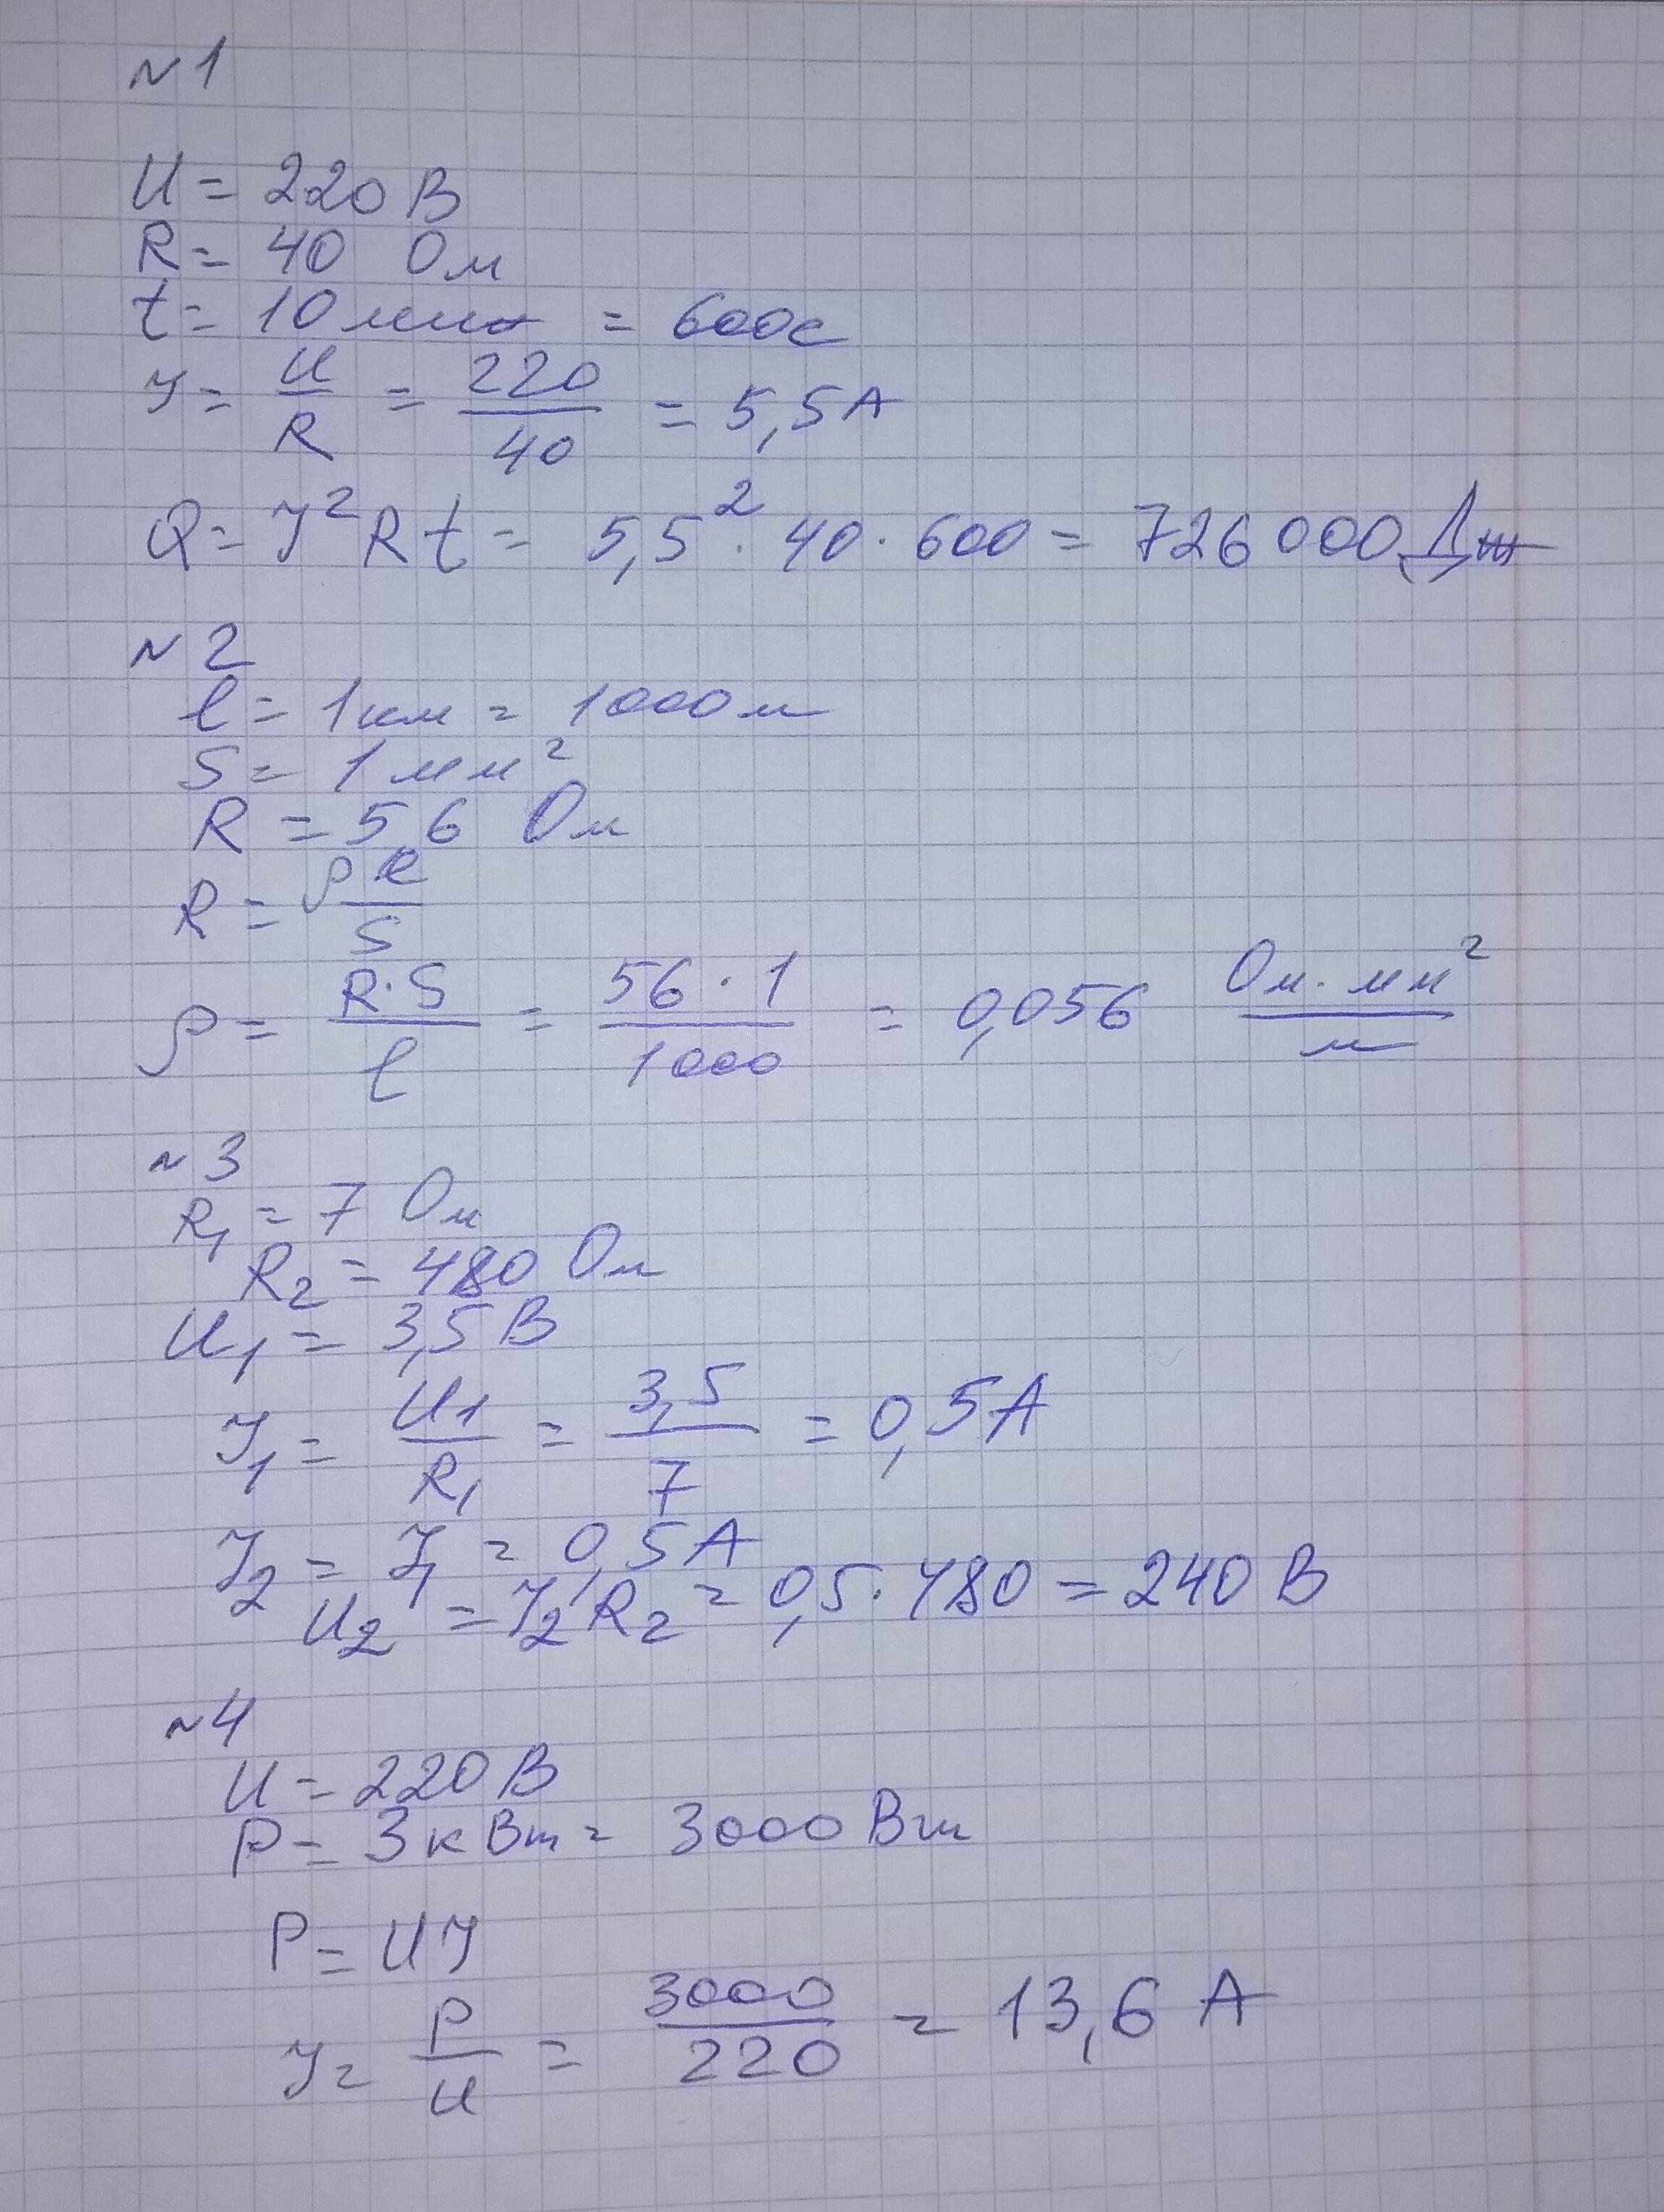 №1
U = 220 В
R = 40 Ом
t = 10 мин = 600с
I = U/R = 220/40 = 5,5 А
Q = I² R t = 5,5² · 40 · 600 = 726000 Дж
№2
l = 1 км = 1000 м
S = 1 мм²
R = 56 Ом
R = ρ l/S
ρ = R·S/l = 56·1/1000 = 0,056 Ом·мм²/м
№3
R₁ = 7 Ом
R₂ = 480 Ом
U₁ = 3,5 В
I₁ = U₁/R₁ = 3,5/7 = 0,5 А
I₂ = I₁ = 0,5 А
U₂ = I₂ R₂ = 0,5·480 = 240 В
№4
U = 220 В
P = 3 кВт = 3000 Вт
P = UI
I = P/U = 3000/220 = 13,6 А